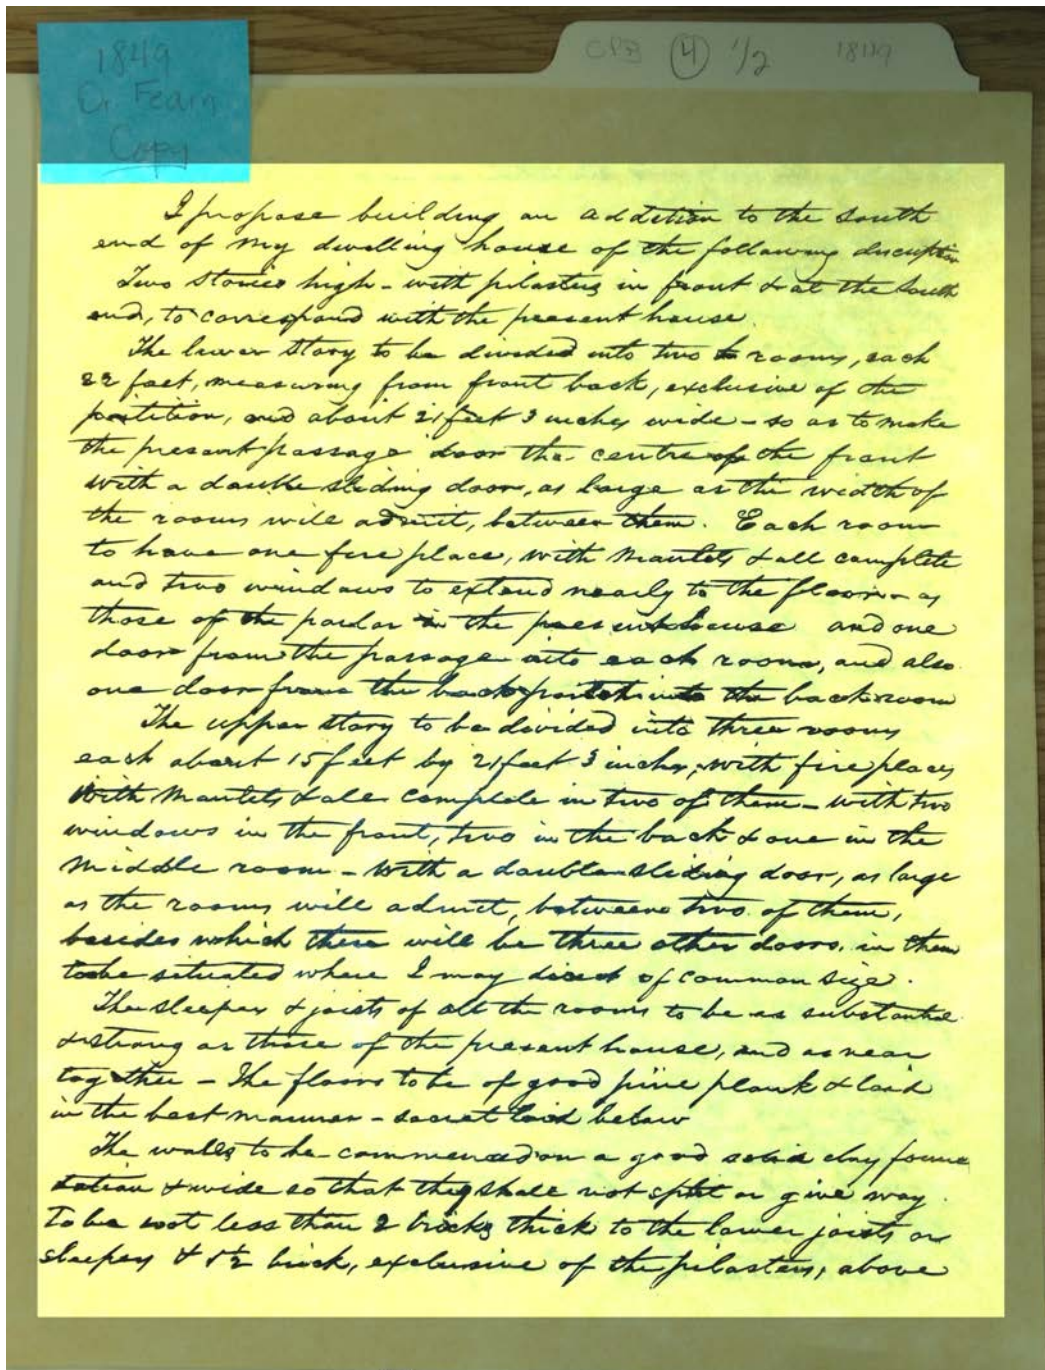 1849
Dr Fearn
Copy
OPB ④ 1/2 1849
I propose building an addition to the South
end of my dwelling house of the following discription
Two Stories high - with pilasters in front & at the South
end, to correspond with the present house.
The lower Story to be divided into two rooms, each
22 feet, measuring from front back, exclusive of the
partition, and about 21 feet 3 inches wide - so as to make
the present passage door the centre of the front
with a double sliding door, as large as the width of
the rooms will admit, between them. Each room
to have one fire place, with Mantels & all complete
and two windows to extend nearly to the floor - as
those of the parlor in the present house and one
door from the passage into each room, and also
one door from the back portch into the back room
The upper story to be divided into three rooms
each about 15 feet by 21 feet 3 inches, with fire places
With Mantels & all complete in two of them - with two
windows in the front, two in the back & one in the
Middle room - With a double sliding door, as large
as the rooms will admit, between two of them,
besides which there will be three other doors in them
to be situated where I may direct of common size.
The sleepers & joists of all the rooms to be as substantial
& strong as those of the present house, and as near
together - The floors to be of good pine plank & laid
in the best manner - secret laid below
The walls to be commenced on a good solid clay foun
dation & wide so that they shall not split or give way.
To be not less than 2 bricks thick to the lower joists or
sleepers & 1½ brick, exclusive of the pilasters, above